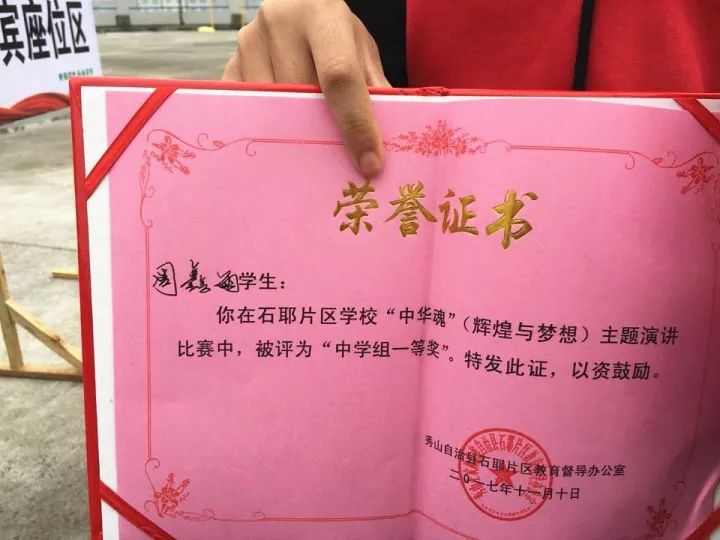 宾座位区
荣誉证书
周鑫 学生：
你在石耶片区学校“中华魂”（辉煌与梦想）主题演讲
比赛中，被评为“中学组一等奖”。特发此证，以资鼓励。
秀山自治县石耶片区教育督导办公室
二〇一七年十一月十日